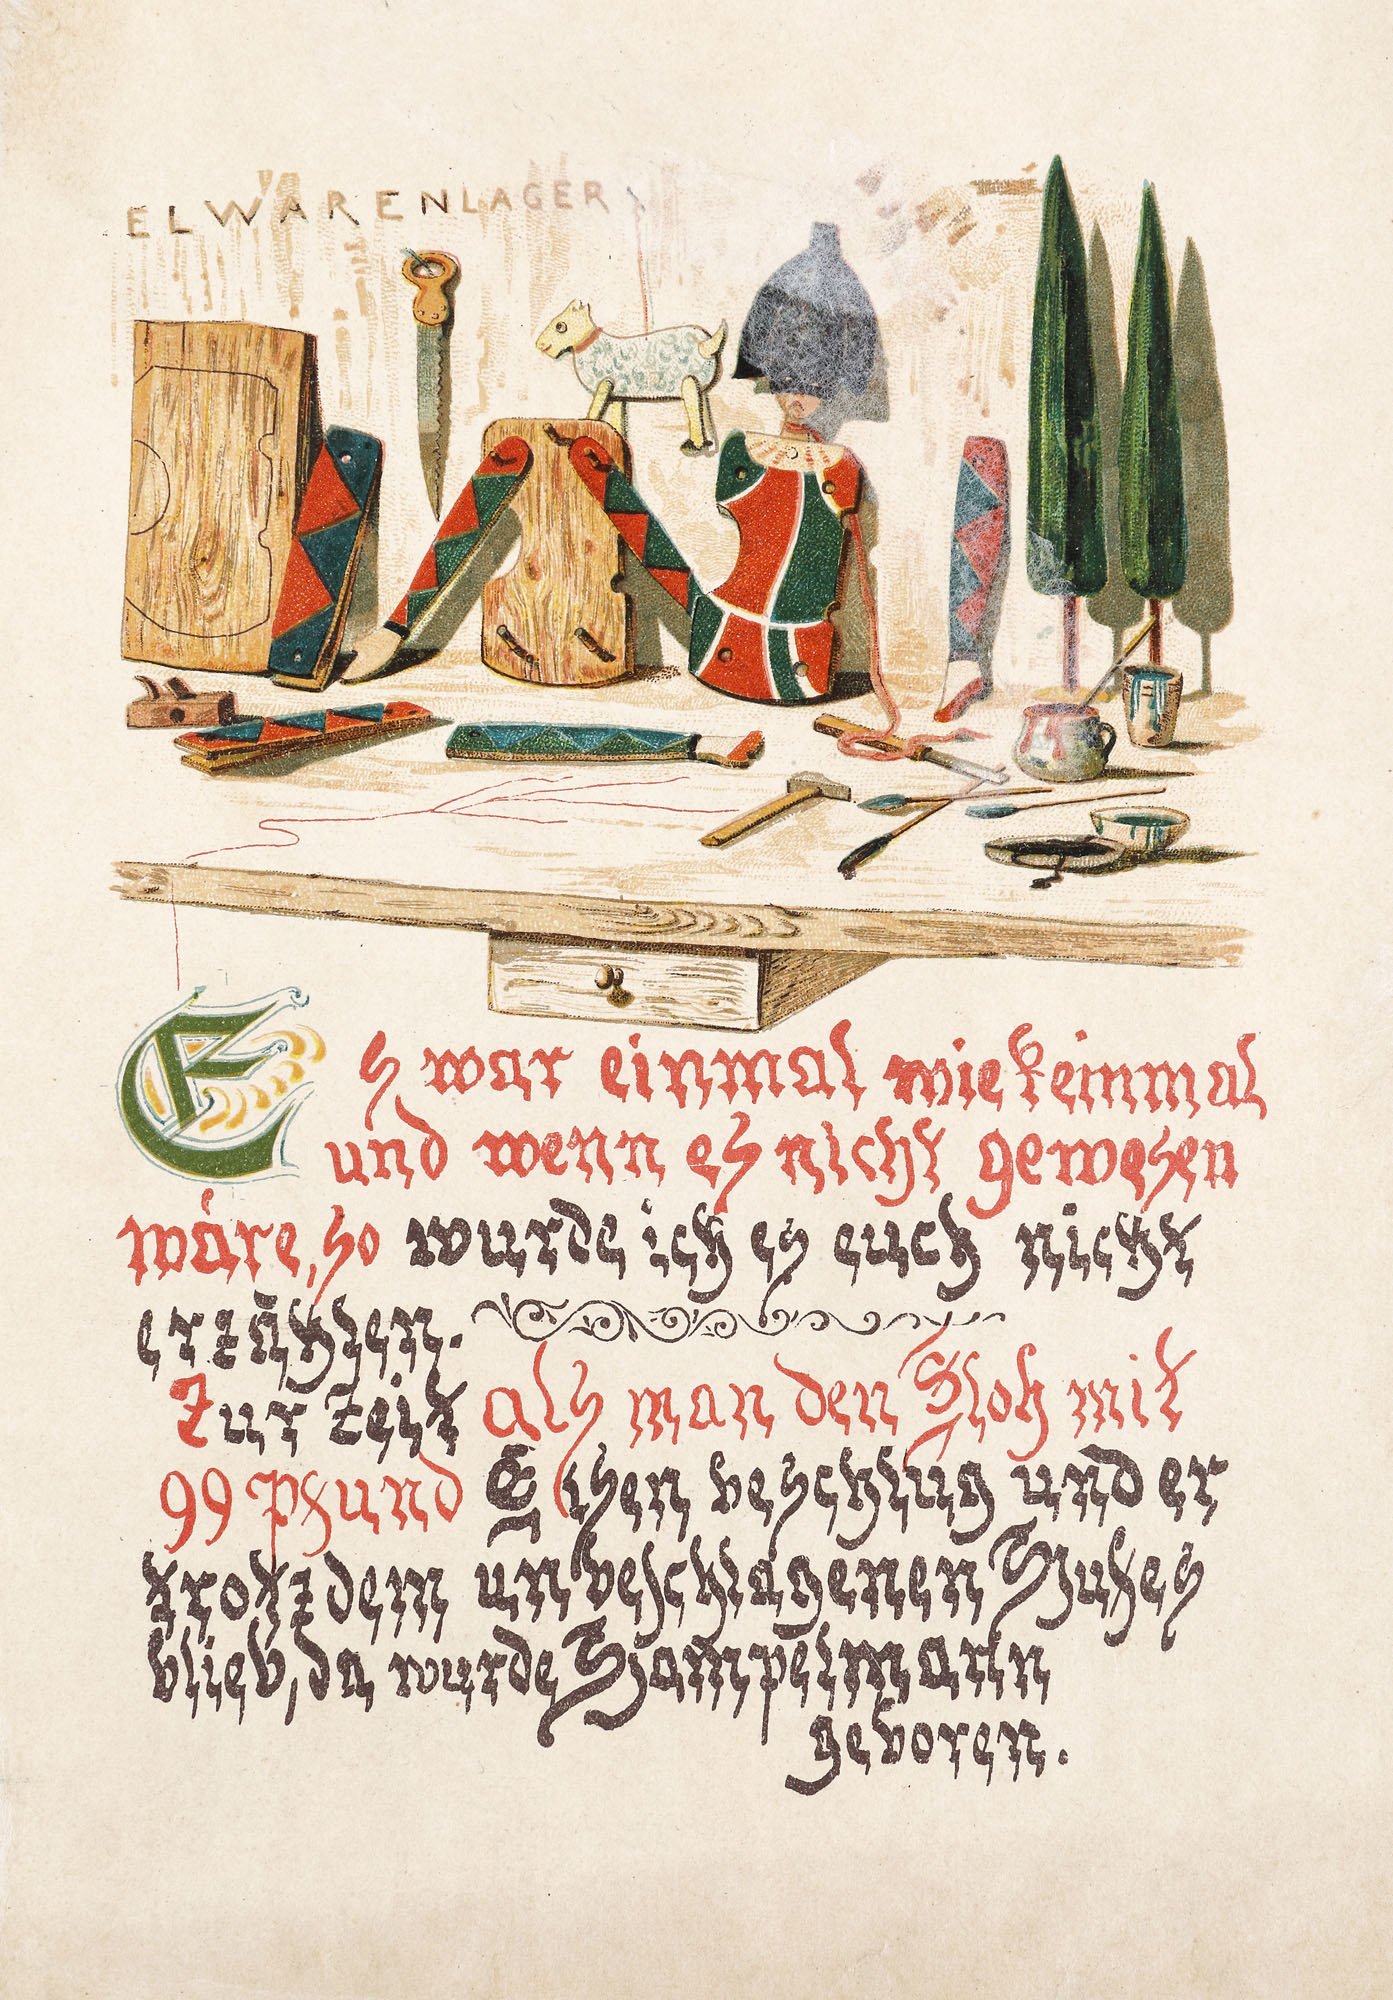 ELWARENLAGER
Es war einmal wie keinmal
und wenn es nicht gewesen
wäre, so wurde ich es euch nicht
erzählen.
Zur Zeit als man den Floh mit
99 Pfund Eisen beschlug und er
trotzdem unbeschlagenen Fußes
blieb, da wurde Hampelmann
geboren.